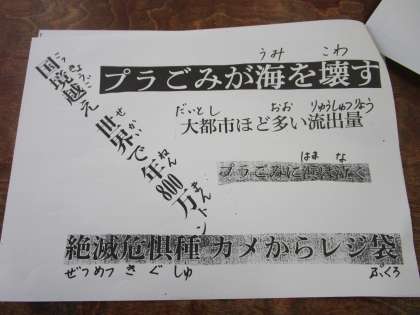 うみ こわ
プラごみが海を壊す
だいとし おお りゅうしゅつりょう
大都市ほど多い流出量
はま な
プラごみに浜は泣く
こっきょうご
国境越え
せかい ねん まん
世界で年800万トン
絶滅危惧種 カメからレジ袋
ぜつめつ きぐしゅ ぶくろ